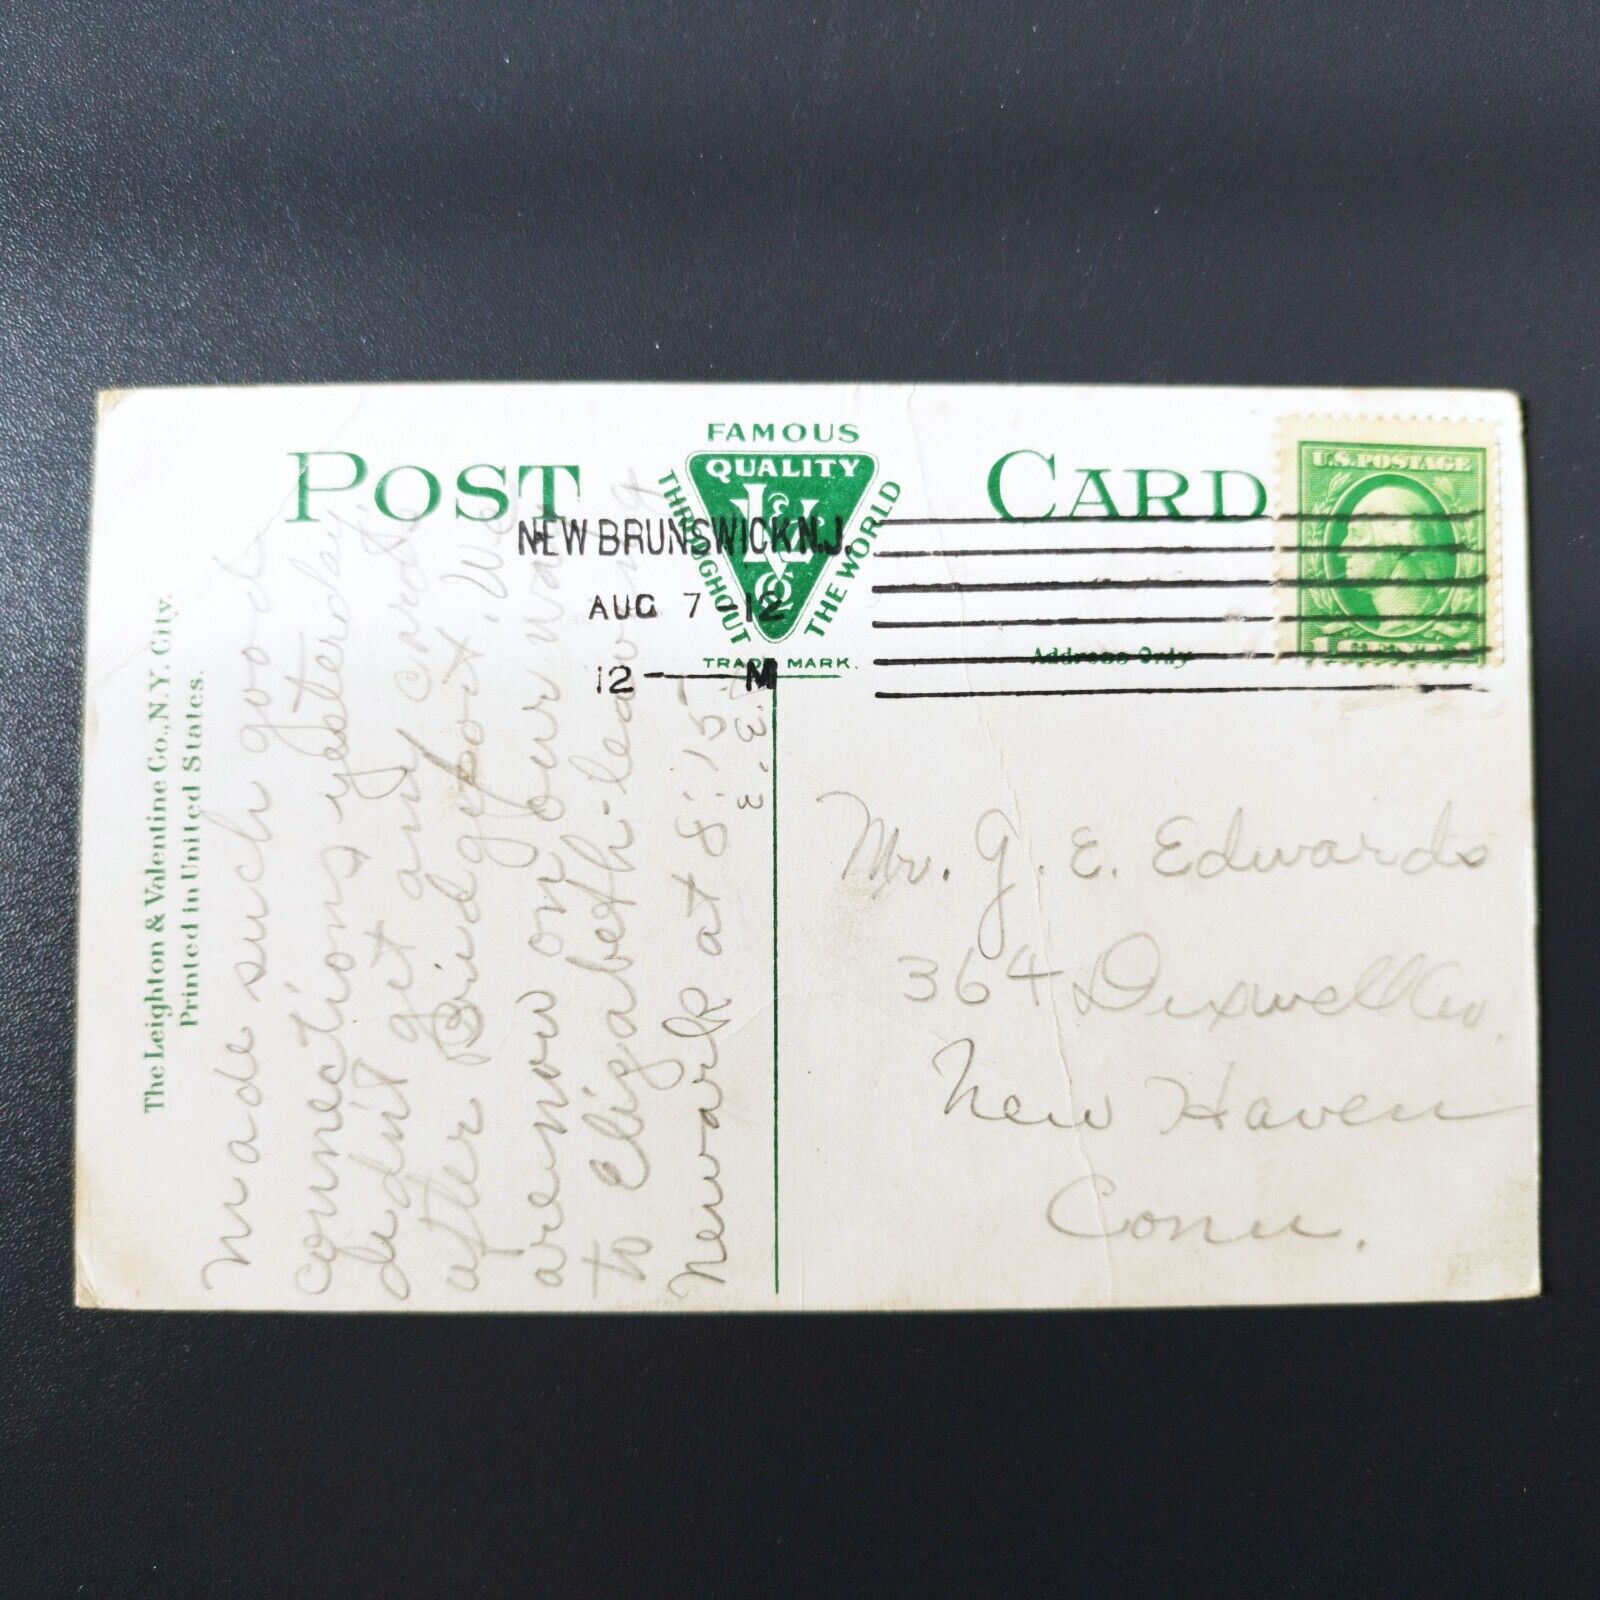 POST CARD
FAMOUS
QUALITY
THROUGHOUT
THE WORLD
TRADE MARK.
NEW BRUNSWICK N.J.
AUG 7 12
12 — M
U.S. POSTAGE
Address Only
The Leighton & Valentine Co., N.Y. City.
Printed in United States.
made such good
connections yesterday
didn't get any cards
after Bridgeport. We
are now on our way
to Elizabeth - leaving
Newark at 8:15
Mr. G. E. Edwards
364 Dixwell Av.
New Haven
Conn.